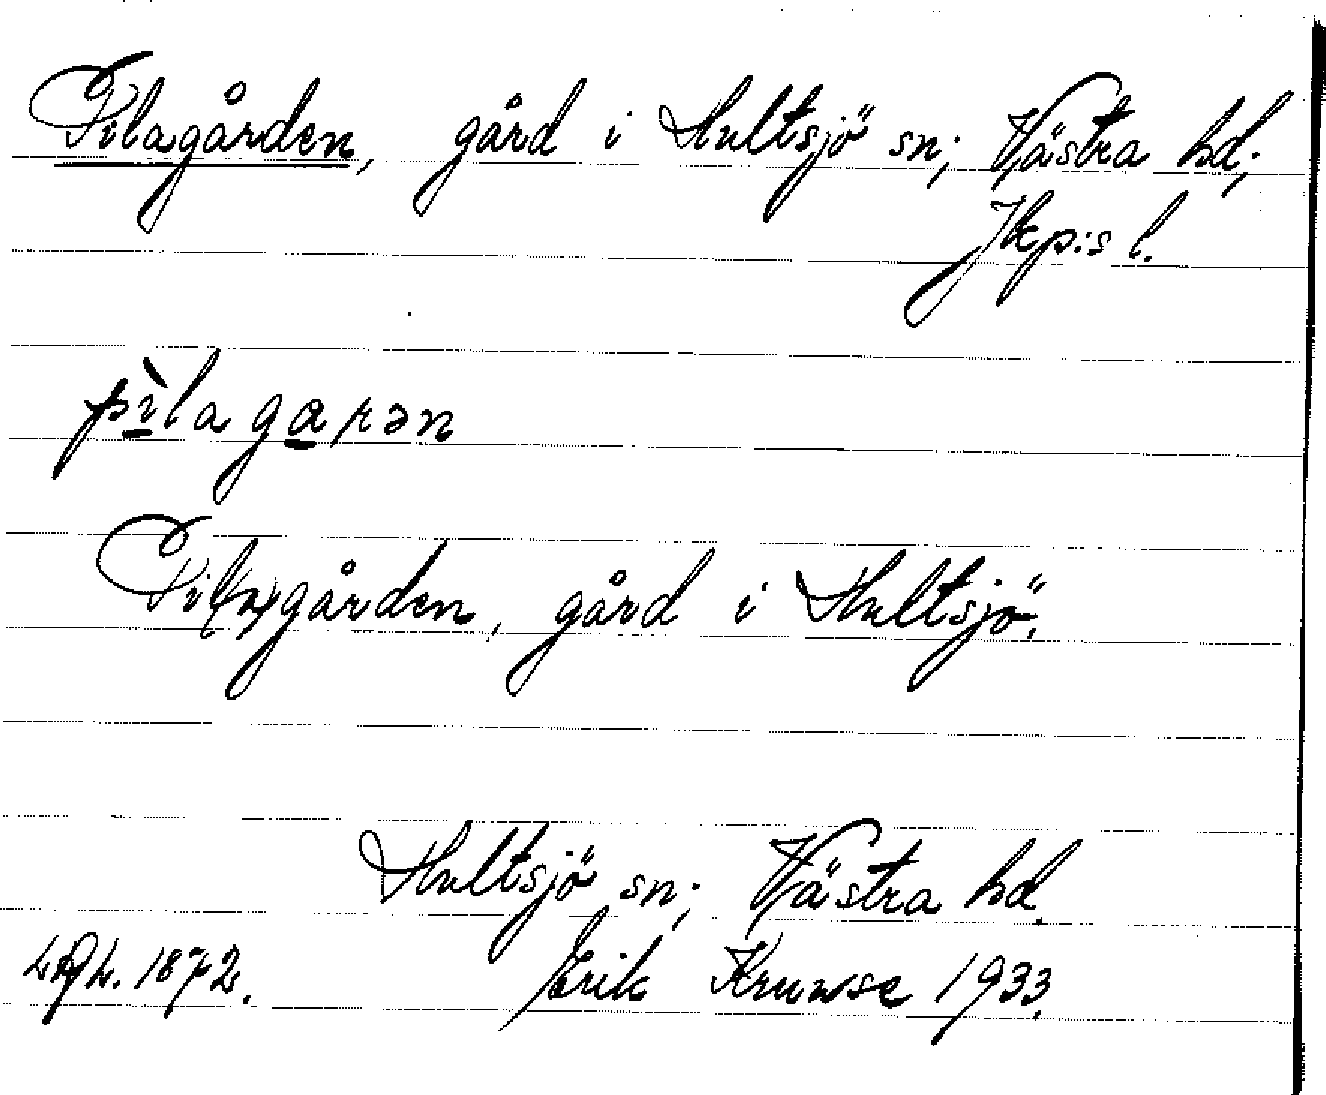 Pilagården, gård i Hultsjö sn; Västra hd;
Jkp:s l.
pìlagarən
Pil(a)gården, gård i Hultsjö.
Hultsjö sn; Västra hd.
1872. Erik Kruuse 1933.